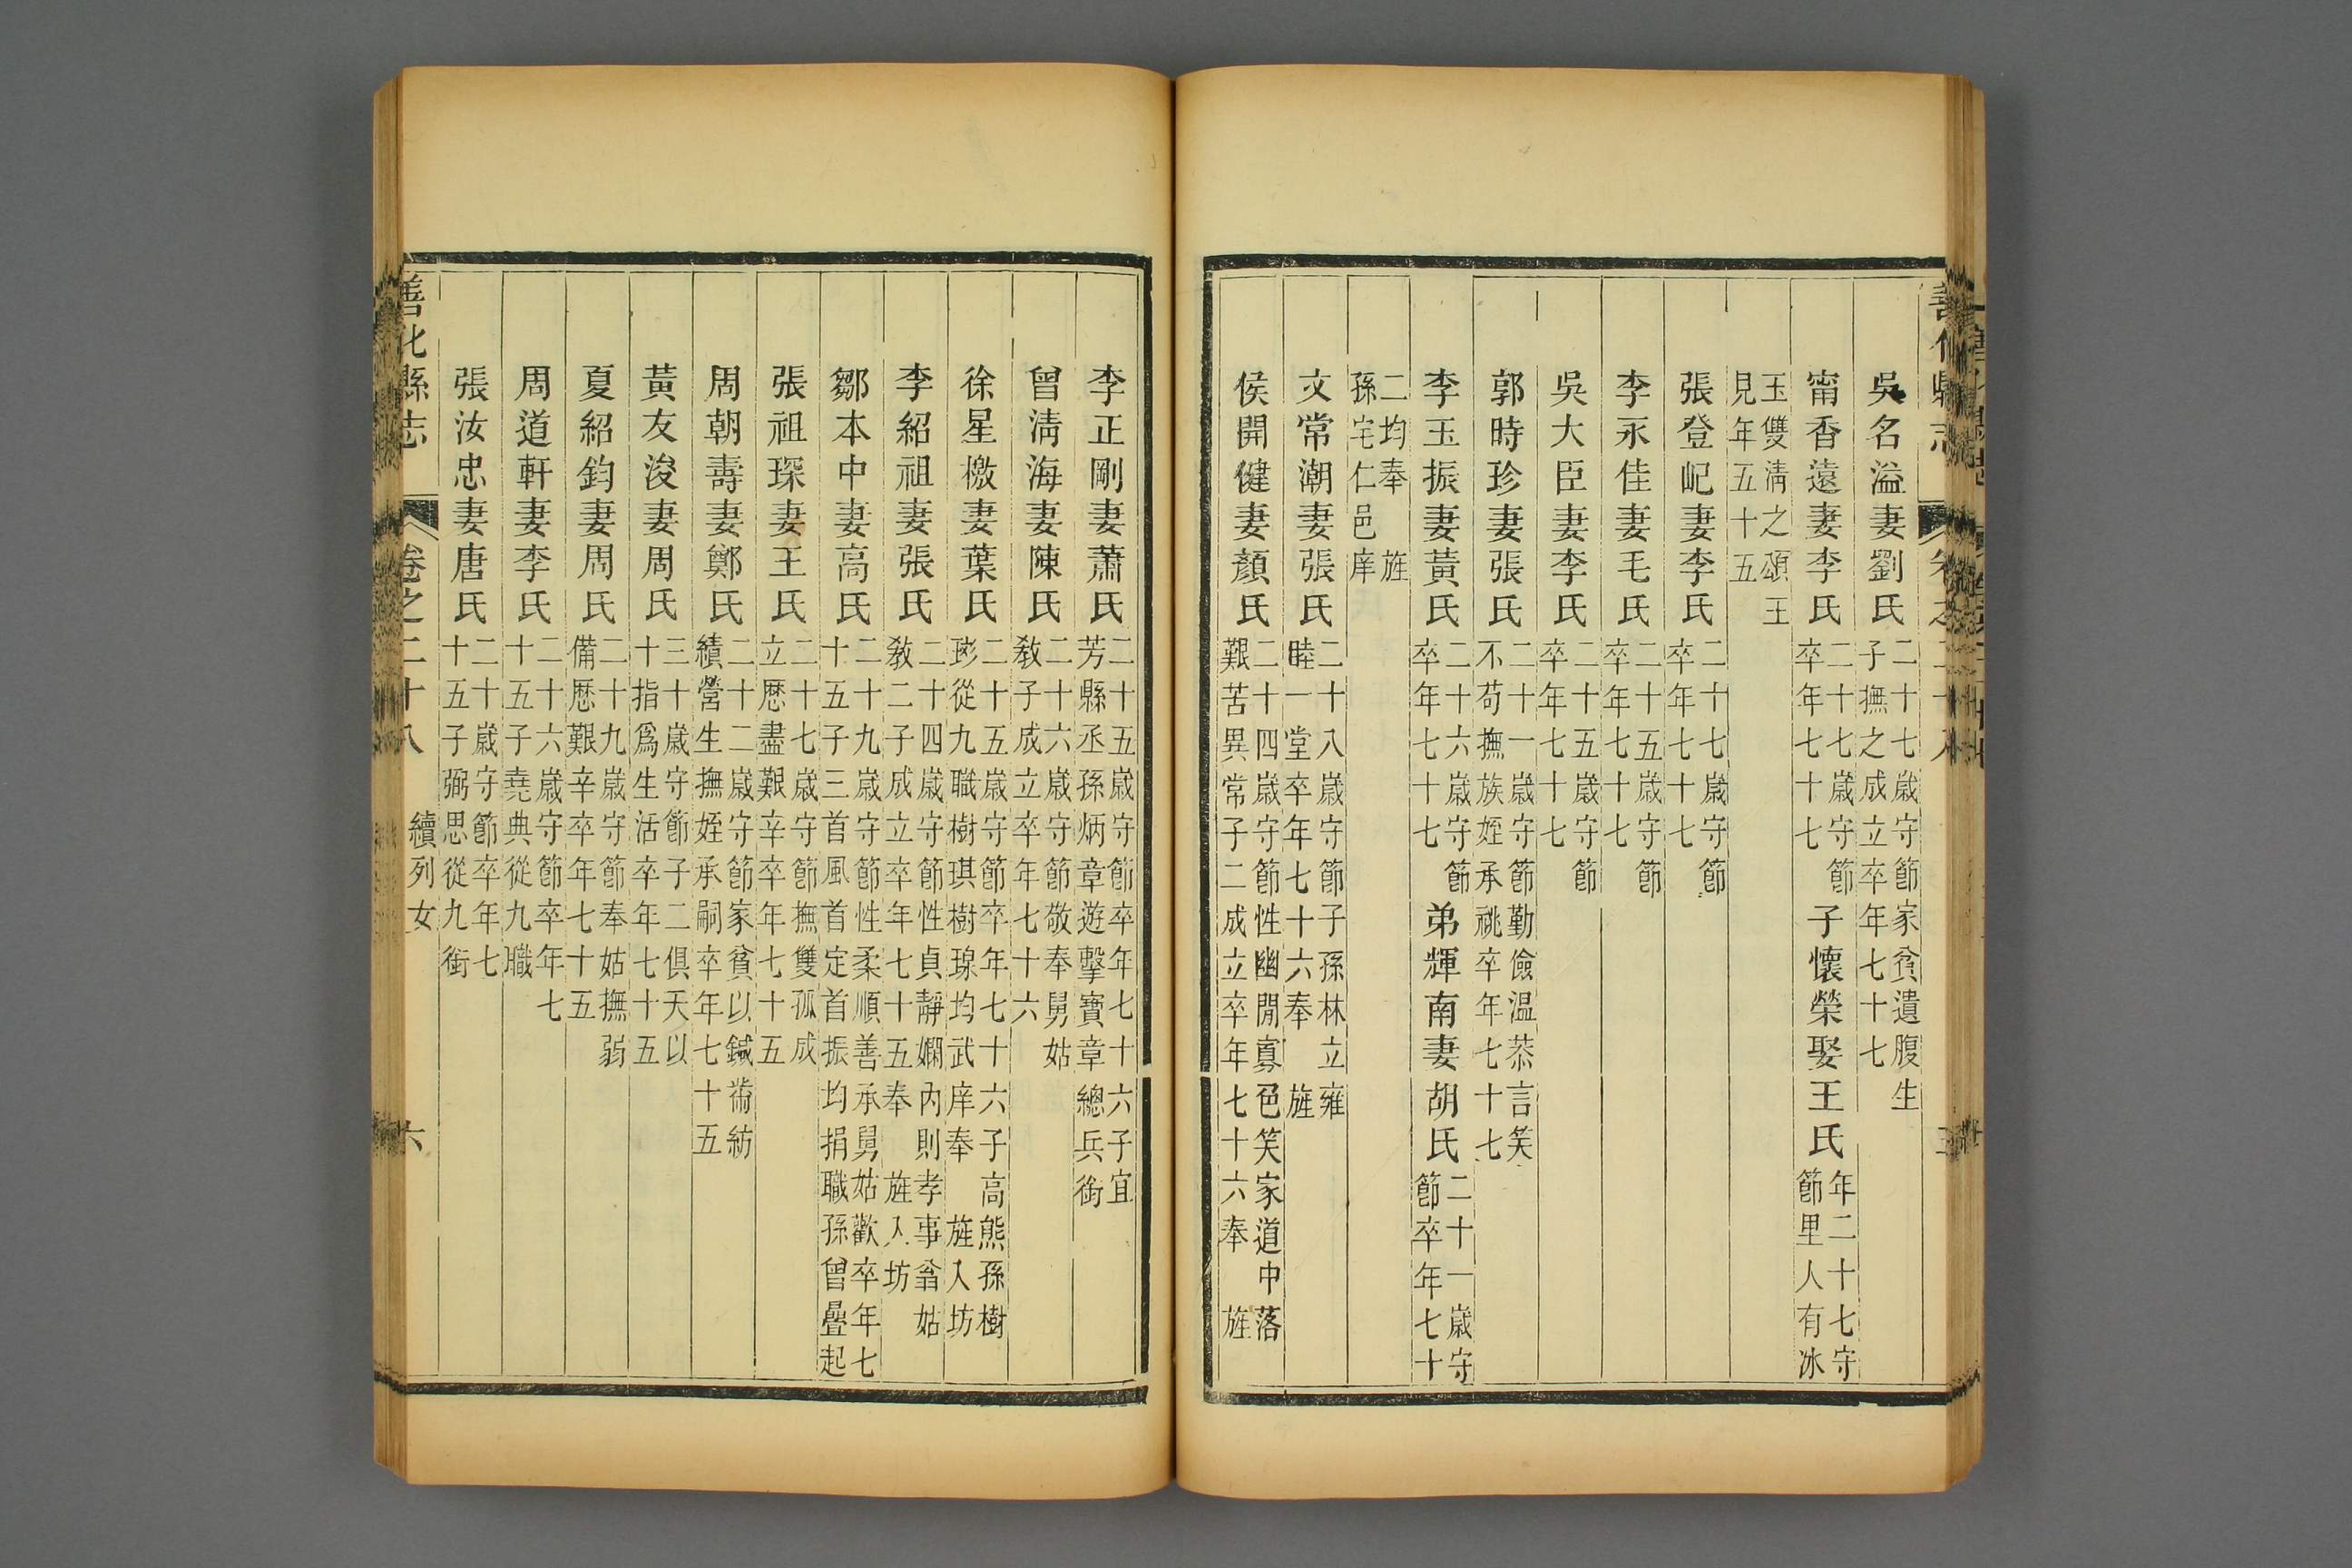 吳名溢妻劉氏 二十七歲守節家貧遺腹生子撫之成立卒年七十七
甯香遠妻李氏 二十七歲守節卒年七十七 子懷榮娶王氏 年二十七守節里人有冰
玉雙淸之頌王見年五十五
張登屺妻李氏 二十七歲守節卒年七十七
李永佳妻毛氏 二十五歲守節卒年七十七
吳大臣妻李氏 二十五歲守節卒年七十七
郭時珍妻張氏 二十一歲守節勤儉温恭言笑不苟撫族姪承祧卒年七十七
李玉振妻黃氏 二十六歲守節卒年七十七 弟輝南妻胡氏 二十一歲守節卒年七十
二均奉 旌孫宅仁邑庠
文常潮妻張氏 二十八歲守節子孫林立雍睦一堂卒年七十六奉 旌
侯開健妻顏氏 二十四歲守節性幽閒寡色笑家道中落艱苦異常子二成立卒年七十六奉 旌
李正剛妻蕭氏 二十五歲守節卒年七十六子宜芳縣丞孫炳章遊擊寶章總兵銜
曾淸海妻陳氏 二十六歲守節敬奉舅姑教子成立卒年七十六
徐星檄妻葉氏 二十五歲守節卒年七十六子高熊孫樹珳從九職樹琪樹瑔均武庠奉 旌入坊
李紹祖妻張氏 二十四歲守節性貞靜嫻內則孝事翁姑教二子成立卒年七十五奉 旌入坊
鄒本中妻高氏 二十九歲守節性柔順善承舅姑歡卒年七十五子三首風首定首振均捐職孫曾疊起
張祖琛妻王氏 二十七歲守節撫雙孤成立歷盡艱辛卒年七十五
周朝壽妻鄭氏 二十二歲守節家貧以鍼黹紡績營生撫姪承嗣卒年七十五
黃友浚妻周氏 三十歲守節子二俱夭以十指爲生活卒年七十五
夏紹鈞妻周氏 二十九歲守節奉姑撫弱備歷艱辛卒年七十五
周道軒妻李氏 二十六歲守節卒年七十五子堯典從九職
張汝忠妻唐氏 二十歲守節卒年七十五子弼思從九銜
善化縣志 卷之二十八 續列女 六